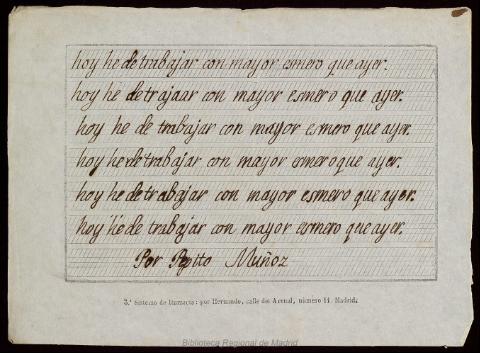 hoy he de trabajar con mayor esmero que ayer.
hoy he de trajaar con mayor esmero que ayer.
hoy he de trabajar con mayor esmero que ayer.
hoy he de trabajar con mayor esmero que ayer.
hoy he de trabajar con mayor esmero que ayer.
hoy he de trabajar con mayor esmero que ayer.
Por Pepito Muñoz
3.ª Sistema de Iturzaeta: por Hernando, calle del Arenal, número 11. Madrid.
Biblioteca Regional de Madrid